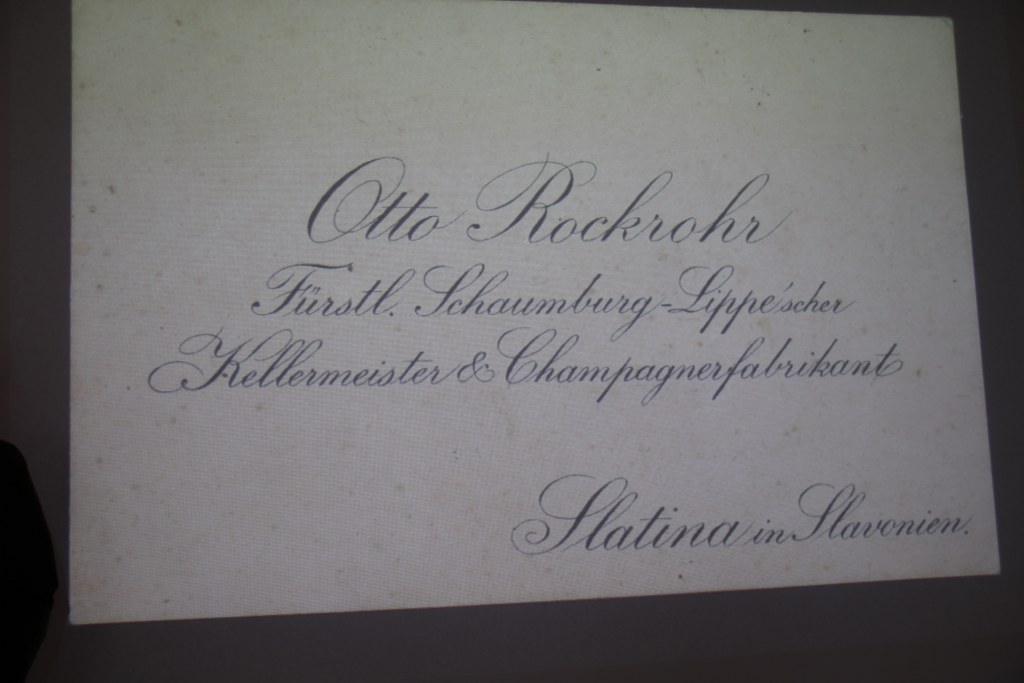 Otto Rockrohr
Fürstl. Schaumburg-Lippe'scher
Kellermeister & Champagnerfabrikant
Slatina in Slavonien.